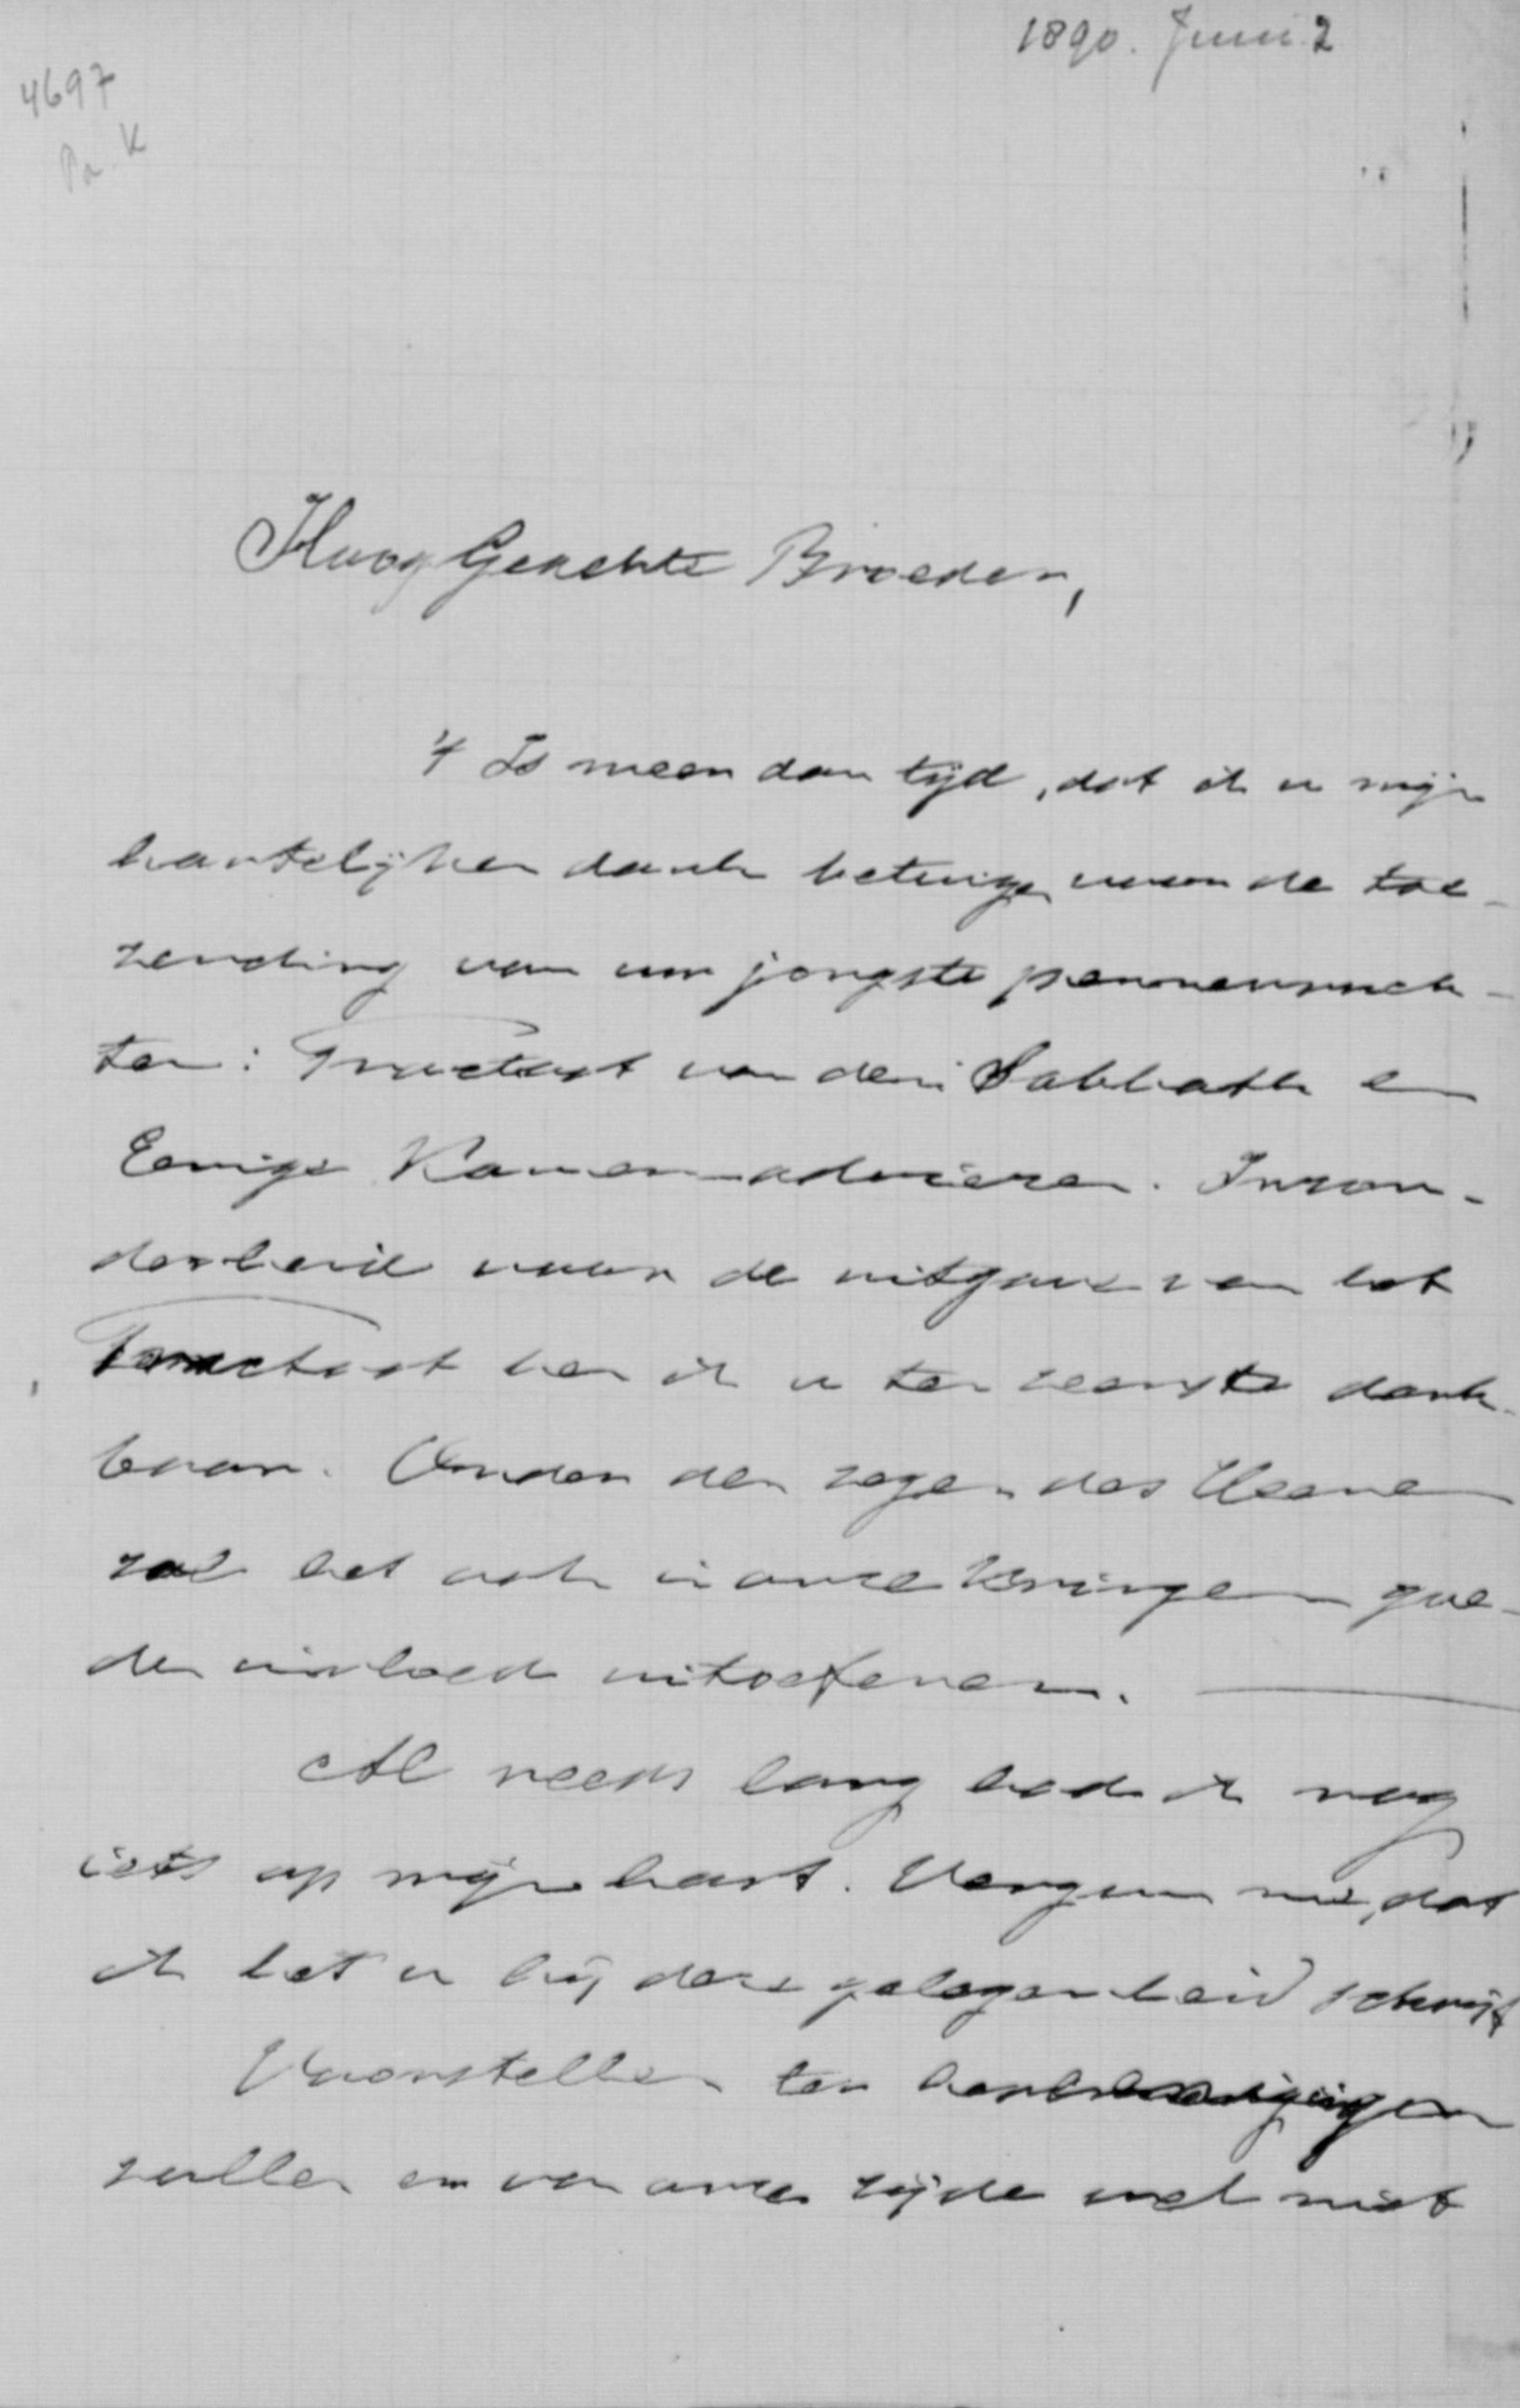 1890. Juni 2
4697
Pa. K
HoogGeachte Broeder,
't Is meer dan tijd, dat ik u mijn
hartelijken dank betuige voor de toe-
zending van uw jongste pennevruch-
ten: Tractaat van den Sabbath en
Eenige Kameradviezen. Inzon-
derheid voor de uitgave van het
Tractaat ben ik u ten zeerste dank-
baar. Onder den zegen des Heeren
zal het ook in onze kringen goe-
den invloed uitoefenen.
Al reeds lang had ik nog
iets op mijn hart. Vergun me, dat
ik het u bij deze gelegenheid schrijf
Voorstellen ter
zullen er van onze zijde wel niet